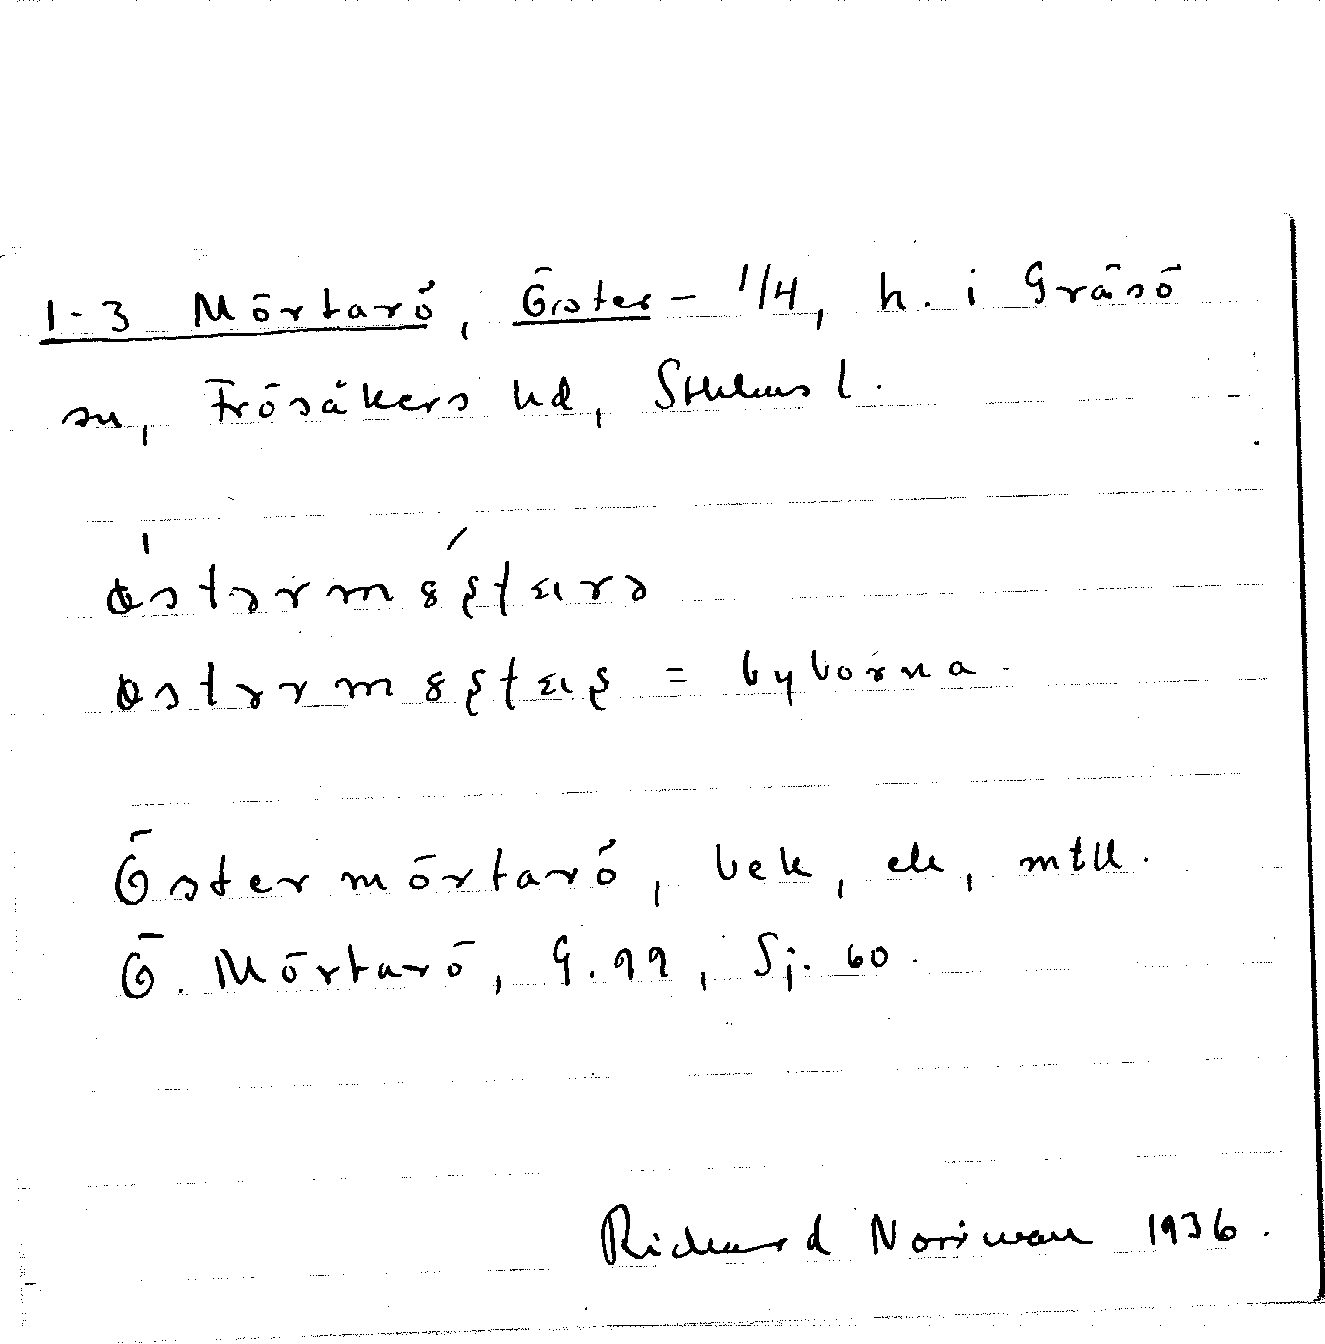 1-3 Mörtarö, Öster- 1/4, h. i Gräsö
sn, Frösåkers hd, Sthlms l.
= byborna.
Östermörtarö, bek, ek, mtll.
Ö. Mörtarö, G. 99, Sj. 60.
Richard Norrman 1936.